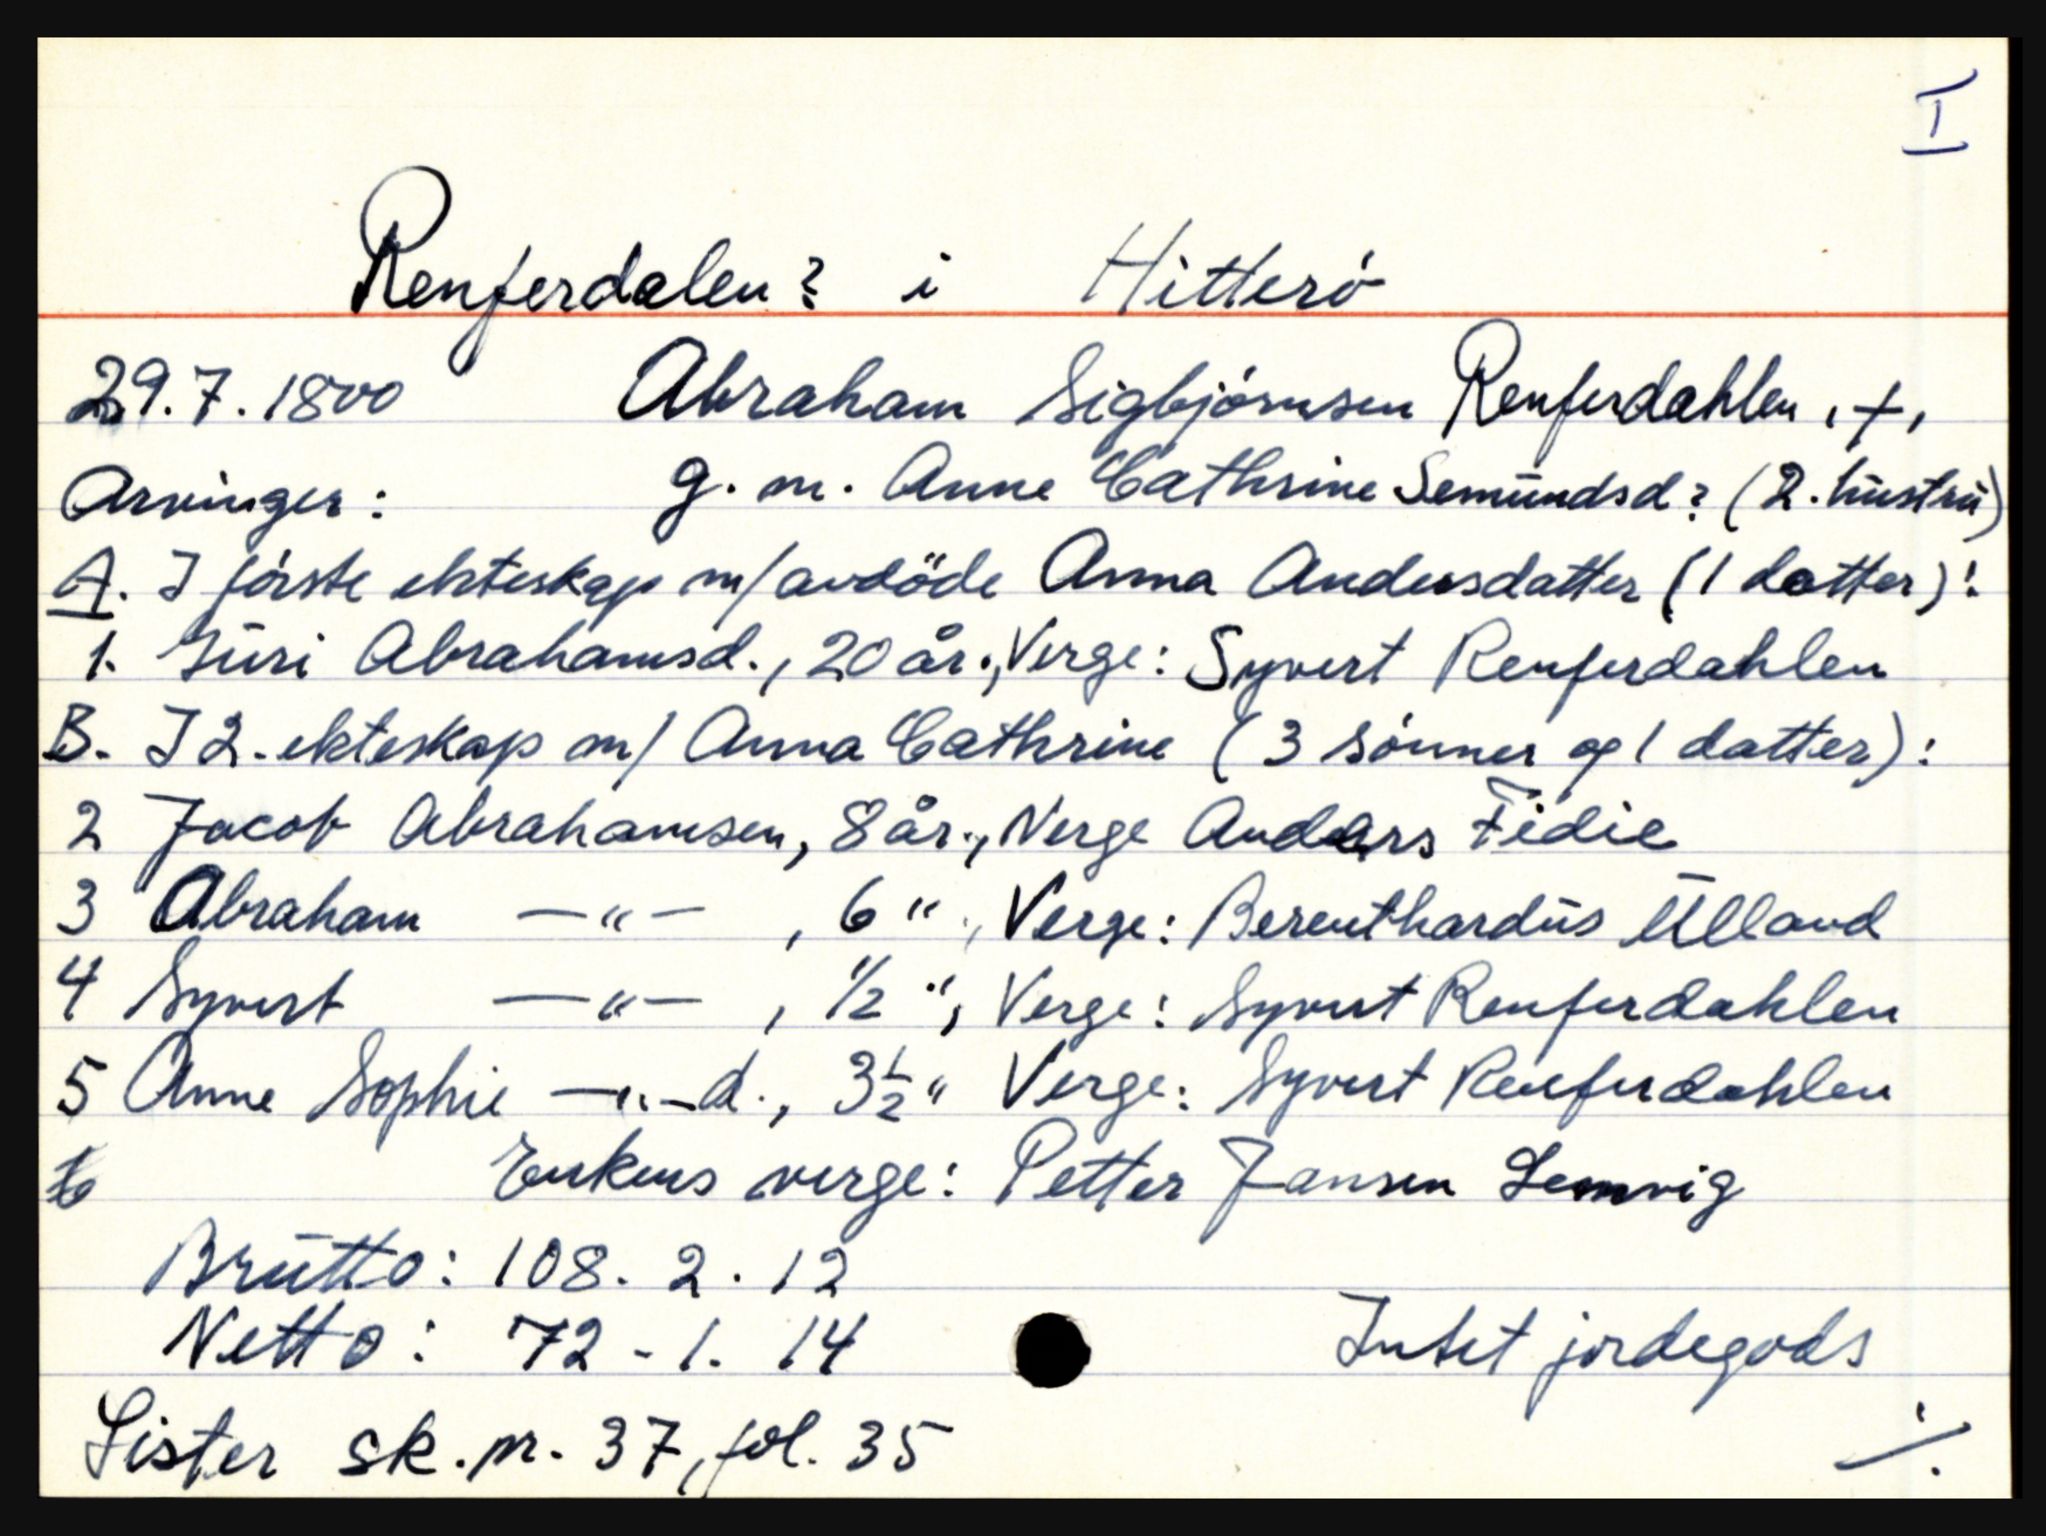 I
Renferdalen? i Hitteró
29.7.1800 Abraham Sigbjórnsen Renferdahlen, +,
Arvinger: g. m. Anne Cathrine Semundsd? (2. hustru)
A. I fórste ekteskap m/avdöde Anna Andersdatter (1 datter):
1. Guri Abrahamsd., 20 år., Verge: Syvert Renferdahlen
B. I 2. ekteskap m/ Anna Cathrine (3 sónner og 1 datter):
2 Jacob Abrahamsen, 8 år., Verge Anders Fidie
3 Abraham —"— , 6 ", Verge: Berenthardus Ulland
4 Syvert —"— , 1/2 ", Verge: Syvert Renferdahlen
5 Anne Sophie —"—d., 3 1/2 " Verge: Syvert Renferdahlen
Enkens verge: Petter Jansen Lemvig
Brutto: 108. 2. 12
Netto: 72 - 1. 14 Intet jordegods
Lister sk. pr. 37, fol. 35 ./.